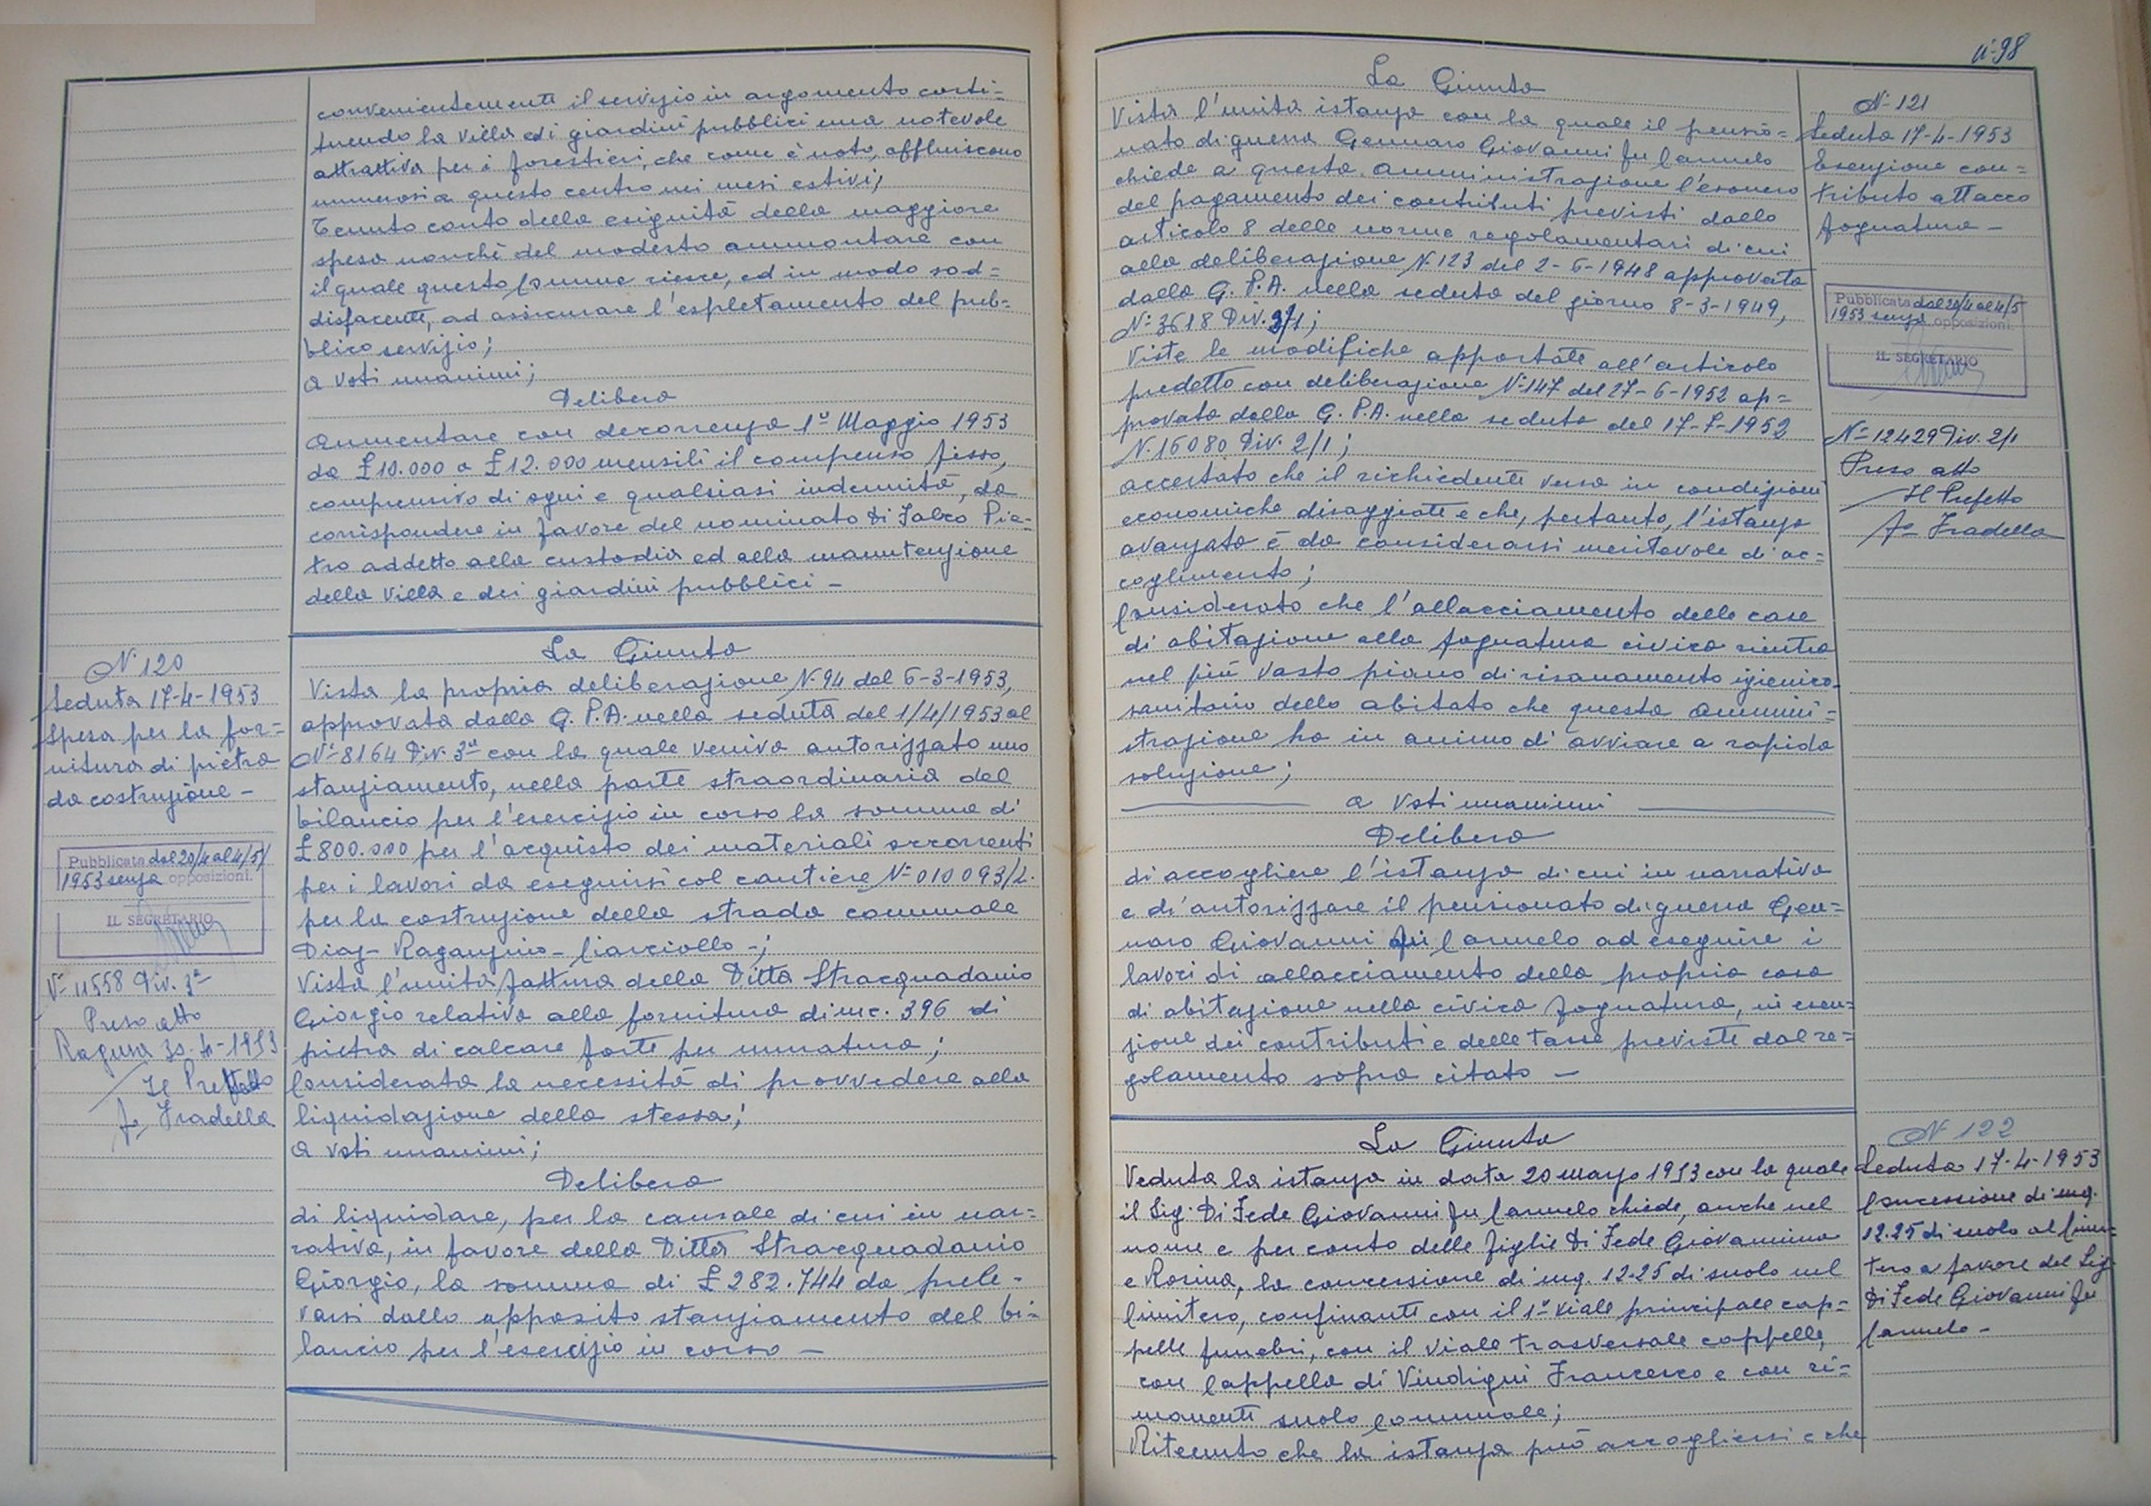 convenientemente il servizio in argomento costi=
tuendo la villa ed i giardini pubblici una notevole
attrattiva per i forestieri, che come è noto, affluiscono
numerosi a questo centro nei mesi estivi;
Tenuto conto della esiguità della maggiore
spesa nonchè del modesto ammontare con
il quale questo Comune riesce, ed in modo sod=
disfacente, ad assicurare l'espletamento del pub=
blico servizio;
a voti unanimi;
Delibera
aumentare con decorrenza 1° Maggio 1953
da £10.000 a £12.000 mensili il compenso fisso,
comprensivo di ogni e qualsiasi indennità, da
corrispondere in favore del nominato Di Falco Pie=
tro addetto alla custodia ed alla manutenzione
della villa e dei giardini pubblici –
N° 120
Seduta 17-4-1953
Spesa per la for=
nitura di pietra
da costruzione –
Pubblicata dal 20/4 al 4/5/
1953 senza opposizioni.
IL SEGRETARIO
N° 11558 Div. 3ª
Preso atto
Ragusa 30-4-1953
Il Prefetto
f° Fradella
La Giunta
Vista la propria deliberazione N. 94 del 6-3-1953,
approvata dalla G.P.A. nella seduta del 1/4/1953 al
N° 8164 Div. 3ª con la quale veniva autorizzato uno
stanziamento, nella parte straordinaria del
bilancio per l'esercizio in corso la somma di
£800.000 per l'acquisto dei materiali occorrenti
per i lavori da eseguirsi col cantiere N° 010093/L.
per la costruzione della strada comunale
Diaz – Raganzino – Ciarciollo –;
Vista l'unita fattura della Ditta Stracquadanio
Giorgio relativa alla fornitura di mc. 396 di
pietra di calcare forte per muratura;
Considerata la necessità di provvedere alla
liquidazione della stessa;
a voti unanimi;
Delibera
di liquidare, per la causale di cui in nar=
rativa, in favore della Ditta Stracquadanio
Giorgio, la somma di £282.744 da prele-
varsi dallo apposito stanziamento del bi=
lancio per l'esercizio in corso –
n° 98
La Giunta
Vista l'unita istanza con la quale il pensio=
nato di guerra Gennaro Giovanni fu Carmelo
chiede a questa amministrazione l'esonero
del pagamento dei contributi previsti dallo
articolo 8 delle norme regolamentari di cui
alla deliberazione N. 123 del 2-6-1948 approvata
dalla G.P.A. nella seduta del giorno 8-3-1949,
N° 3618 Div. 2/1;
Viste le modifiche apportate all'articolo
predetto con deliberazione N° 147 del 27-6-1952 ap=
provata dalla G.P.A. nella seduta del 17-7-1952
N. 16080 Div. 2/1;
accertato che il richiedente versa in condizioni
economiche disaggiate e che, pertanto, l'istanza
avanzata è da considerarsi meritevole di ac=
coglimento;
Considerato che l'allacciamento delle case
di abitazione alla fognatura civica rientra
nel più vasto piano di risanamento igienico-
sanitario dello abitato che questa ammini=
strazione ha in animo di avviare a rapida
soluzione;
a voti unanimi
Delibera
di accogliere l'istanza di cui in narrativa
e di autorizzare il pensionato di guerra Gen=
naro Giovanni fu Carmelo ad eseguire i
lavori di allacciamento della propria casa
di abitazione nella civica fognatura, in esen=
zione dei contributi e delle tasse previste dal re=
golamento sopra citato –
N° 121
Seduta 17-4-1953
Esenzione con=
tributo attacco
fognatura –
Pubblicata dal 20/4 al 4/5
1953 senza opposizioni.
IL SEGRETARIO
N° 12429 Div. 2/1
Preso atto
Il Prefetto
f° Fradella
La Giunta
Veduta la istanza in data 20 marzo 1953 con la quale
il Sig. Di Fede Giovanni fu Carmelo chiede, anche nel
nome e per conto delle figlie Di Fede Giovannina
e Rosina, la concessione di mq. 12.25 di suolo nel
Cimitero, confinante con il 1° viale principale cap=
pelle funebri, con il viale trasversale cappelle,
con Cappella di Vindigni Francesco e con ri=
manente suolo Comunale;
Ritenuto che la istanza può accogliersi e che
N° 122
Seduta 17-4-1953
Concessione di mq.
12.25 di suolo al Cimi=
tero a favore del Sig.
Di Fede Giovanni fu
Carmelo –